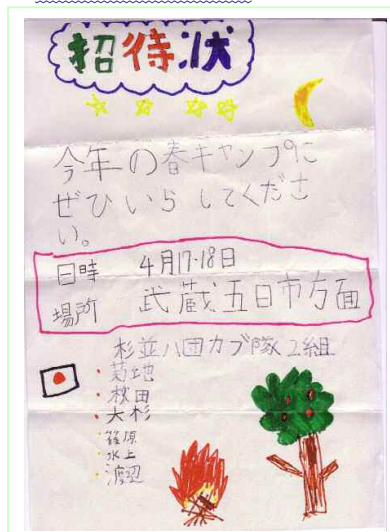 招待状
今年の春キャンプに
ぜひいらしてくださ
い。
日時 4月17・18日
場所 武蔵五日市方面
杉並八団カブ隊2組
・菊地
・秋田
・大杉
・篠原
・水上
・渡辺